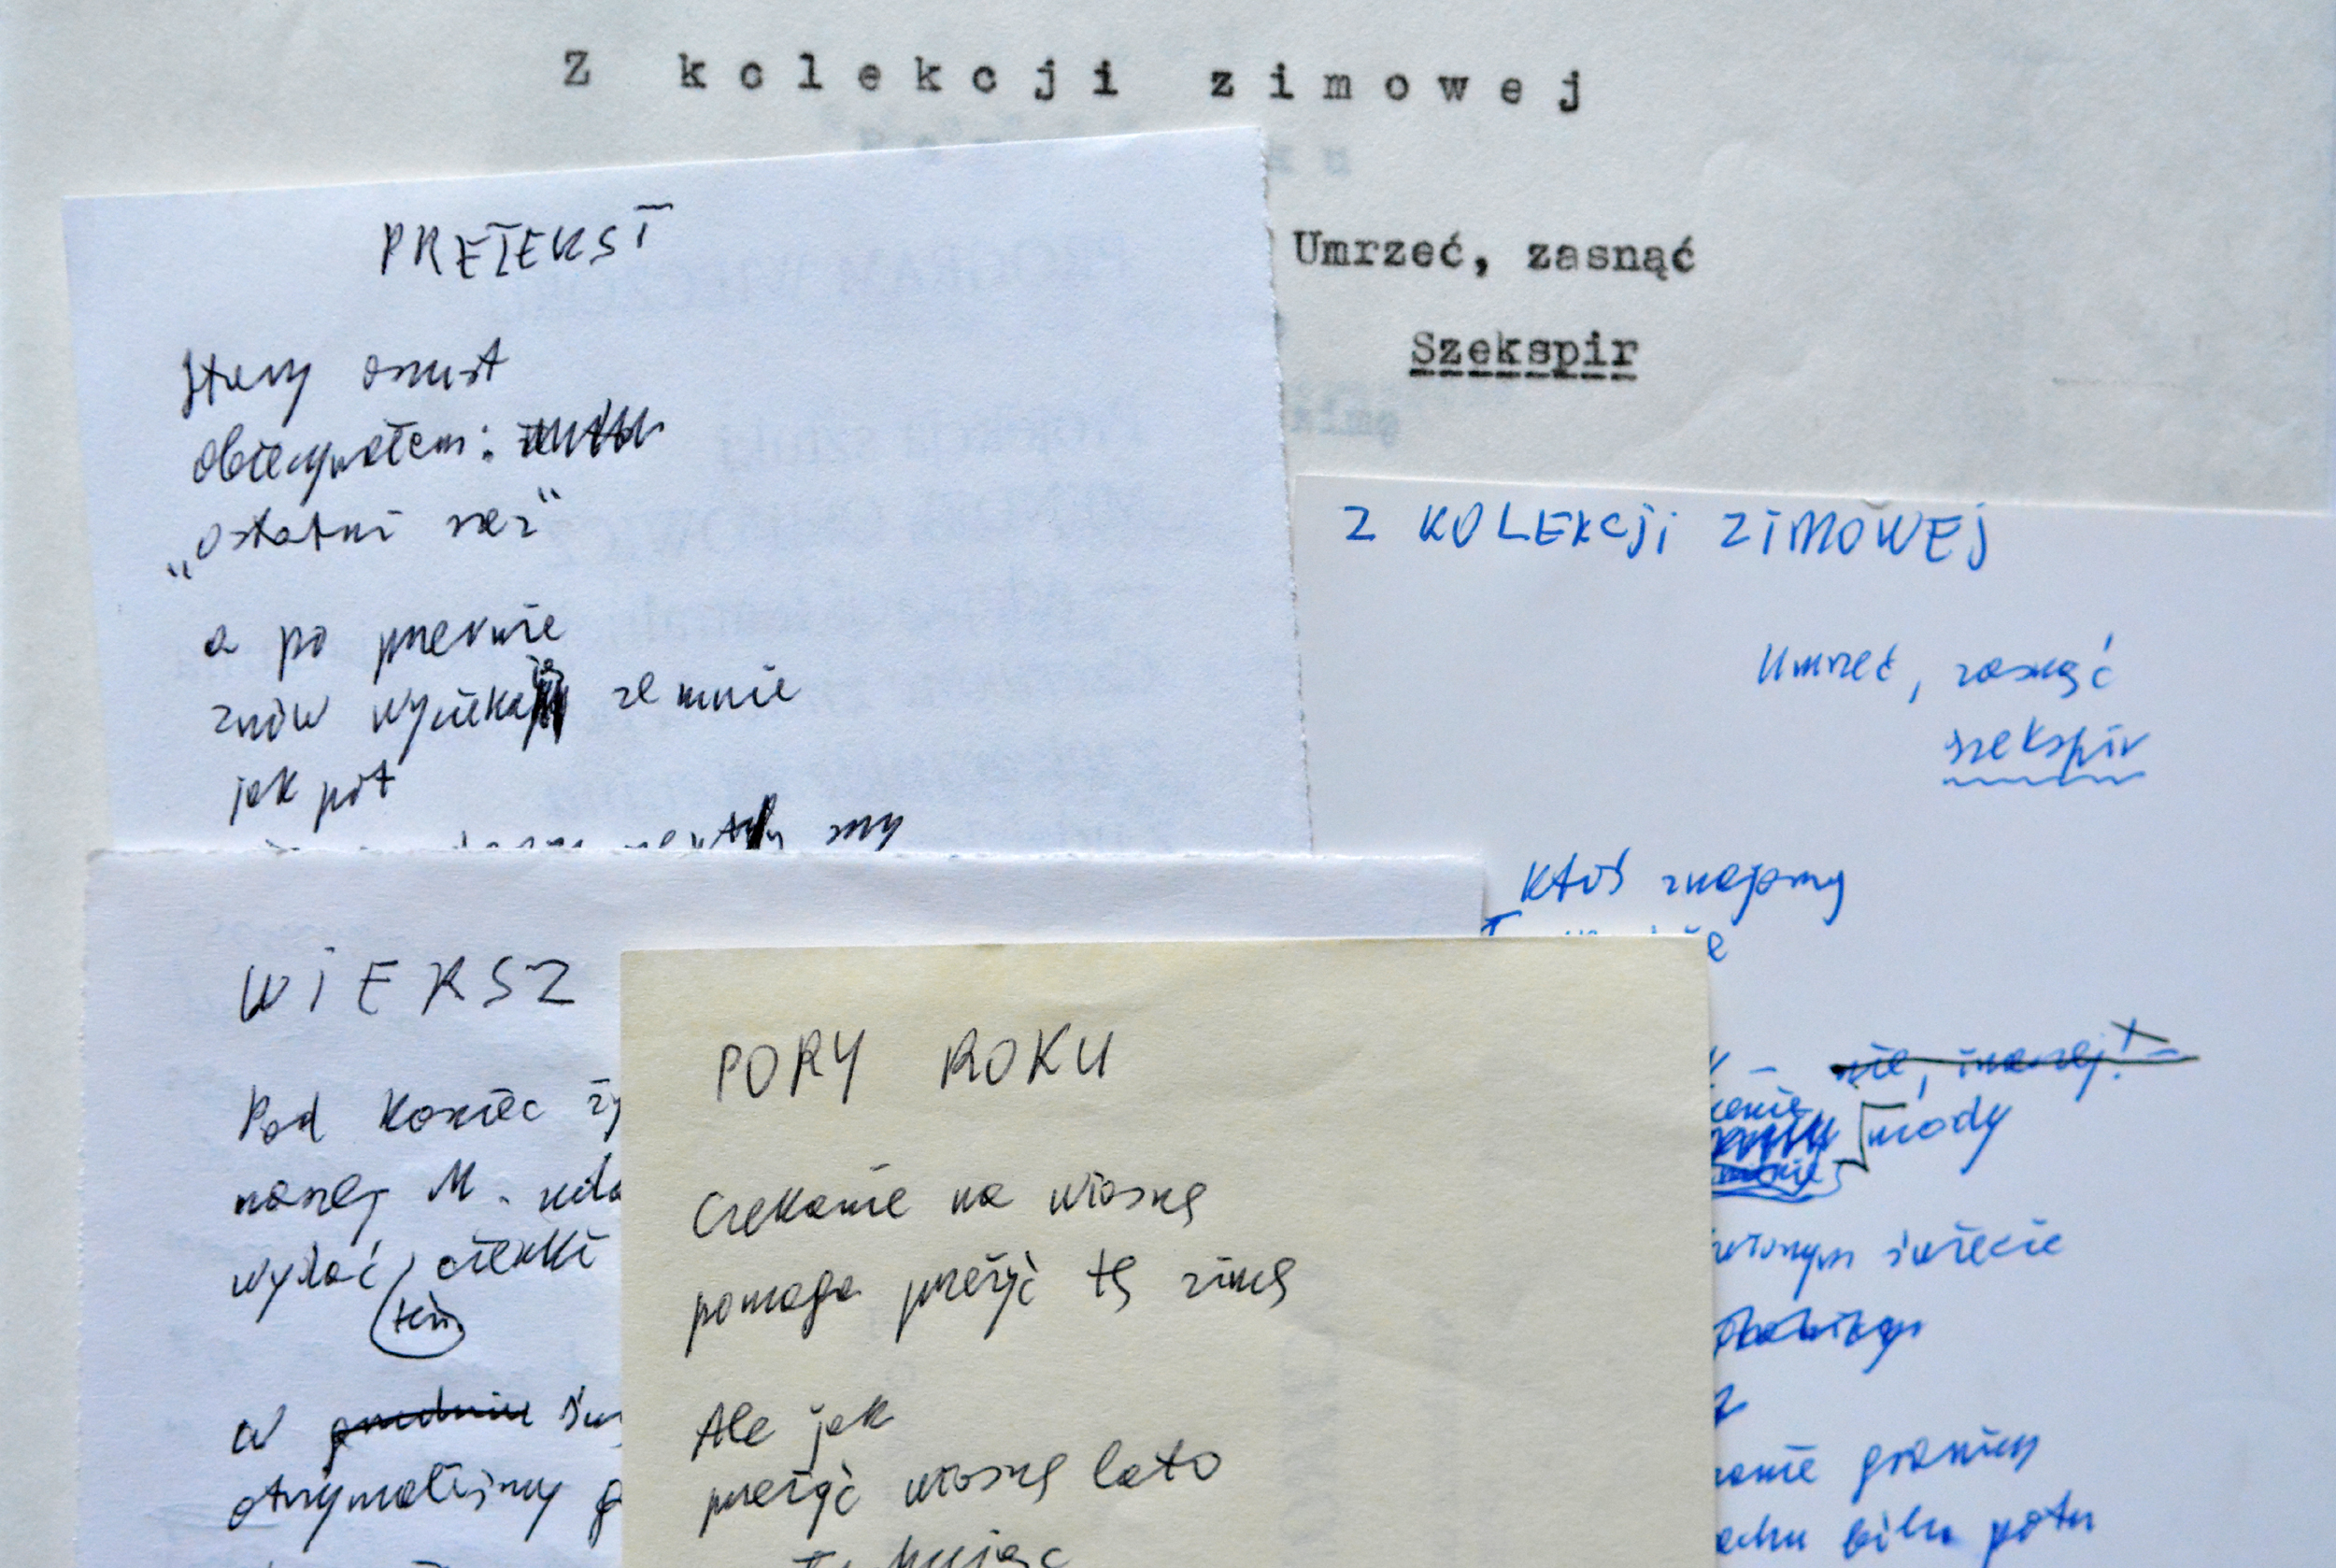 Z kolekcji zimowej
Umrzeć, zasnąć
Szekspir
PRETEKST
Stary oszust
obiecywałem:
„ostatni raz"
a po przerwie
znów wycieka ze mnie
jak pot
my
Z KOLEKCJI ZIMOWEJ
Umrzeć, zasnąć
Szekspir
Ktoś znajomy
nie, inaczej!
mody
świecie
granicy
bilu potu
WIERSZ
Pod koniec ży
naszej M. uda
wydać cienki
ten
w
otrzymaliśmy g
PORY ROKU
Czekanie na wiosnę
pomaga przeżyć tę zimę
Ale jak
przeżyć wiosnę lato